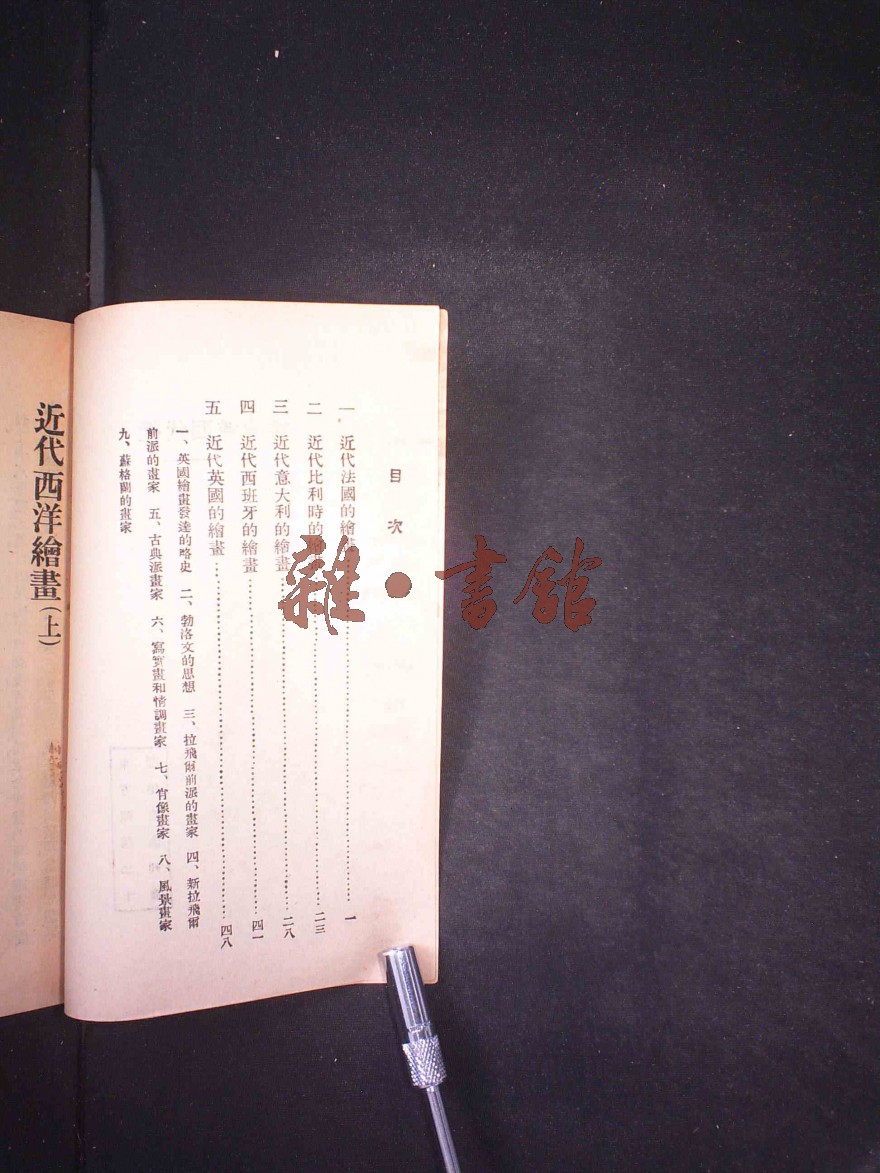 目次
一 近代法國的繪畫 一
二 近代比利時的繪畫 二三
三 近代意大利的繪畫 二八
四 近代西班牙的繪畫 四一
五 近代英國的繪畫 四八
一、英國繪畫發達的略史 二、勃洛文的思想 三、拉飛爾前派的畫家 四、新拉飛爾
前派的畫家 五、古典派畫家 六、寫實畫和情調畫家 七、肖像畫家 八、風景畫家
九、蘇格蘭的畫家
近代西洋繪畫(上)
雜·書館